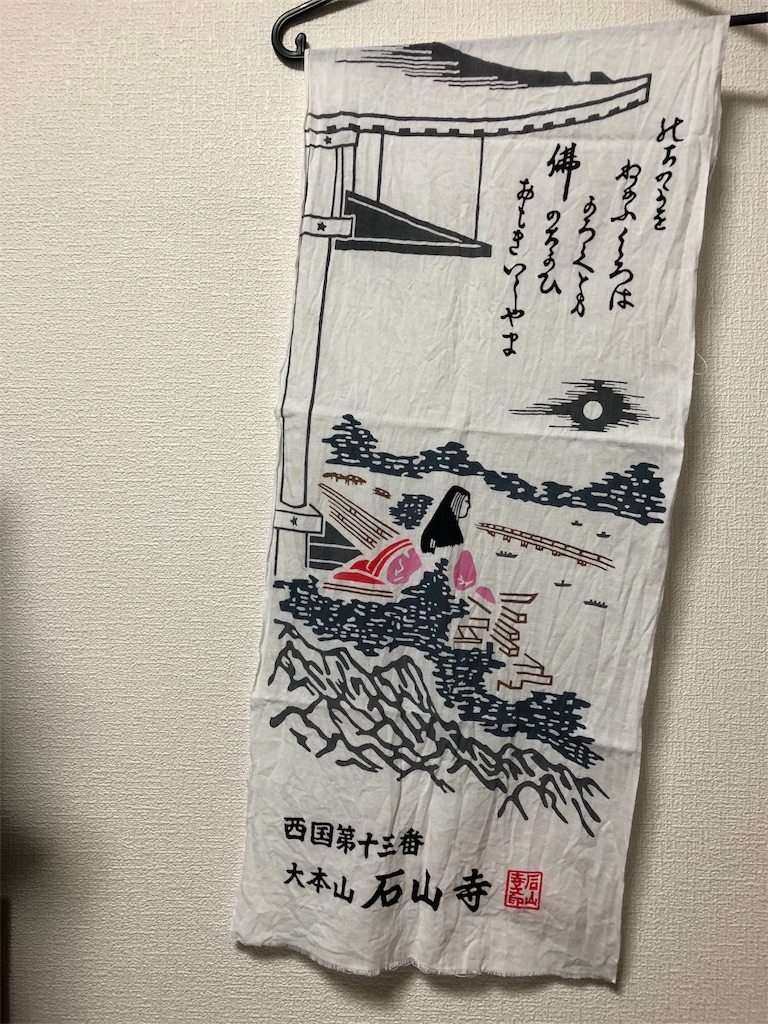 のちのよを
ねかふこゝろは
かろくとも
佛のちかひ
おもきいしやま
西国第十三番
大本山 石山寺
石山寺印